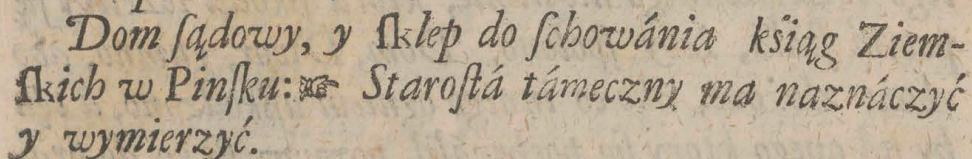 Dom ſądowy, y ſklep do ſchowánia kśiąg Ziem-
ſkich w Pinſku: ☞ Staroſtá támeczny ma naznáczyć
y wymierzyć.